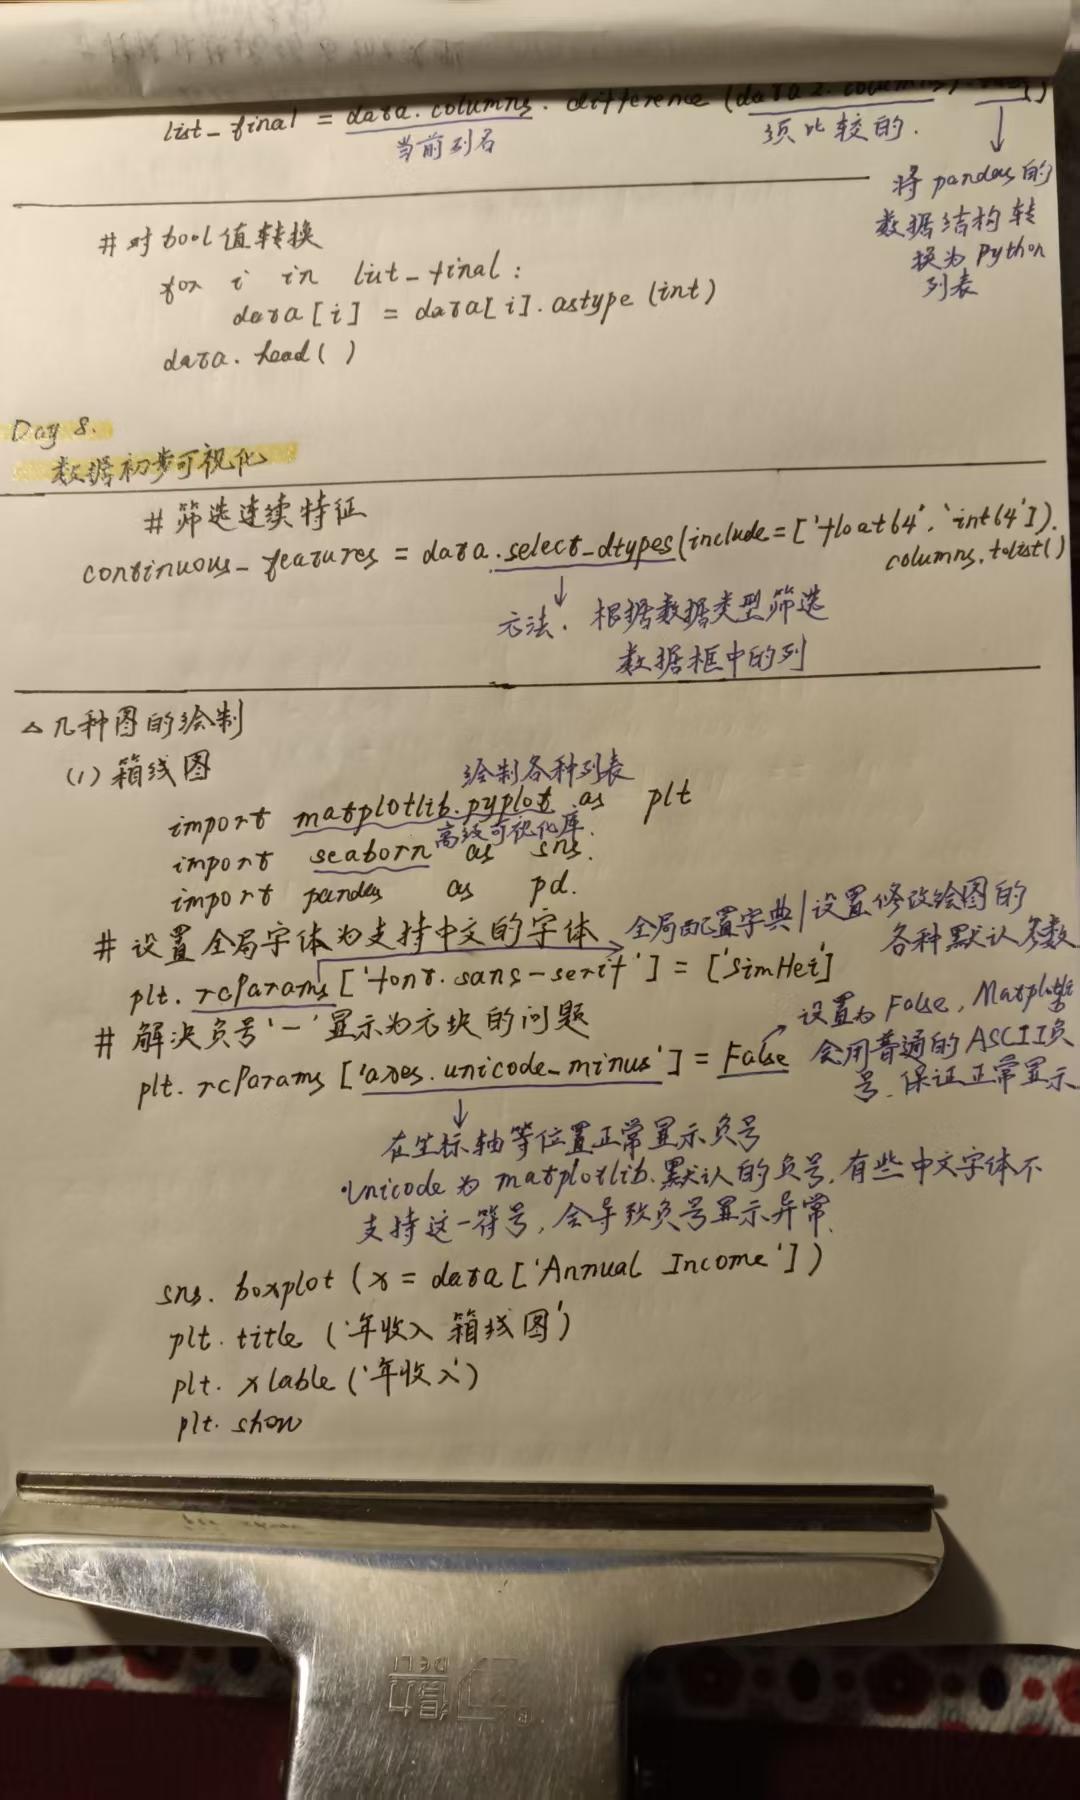 list_final = data.columns.difference(data2.columns).
当前列名
须比较的.
将pandas的
数据结构转
换为Python
列表
# 对bool值转换
for i in list_final:
data[i] = data[i].astype(int)
data.head( )
Day 8.
数据初步可视化
# 筛选连续特征
continuous_features = data.select_dtypes(include=['float64','int64']).
columns.tolist()
方法. 根据数据类型筛选
数据框中的列
△几种图的绘制
(1)箱线图
绘制各种列表
import matplotlib.pyplot as plt
高级可视化库.
import seaborn as sns.
import pandas as pd.
# 设置全局字体为支持中文的字体
全局配置字典/设置修改绘图的
各种默认参数
plt.rcParams['font.sans-serif'] = ['SimHei']
# 解决负号'-'显示为方块的问题
设置为False, Matplotlib
plt.rcParams['axes.unicode_minus'] = False
会用普通的ASCII负
号.保证正常显示
在坐标轴等位置正常显示负号
Unicode为matplotlib.默认的负号,有些中文字体不
支持这一符号,会导致负号显示异常.
sns.boxplot(x=data['Annual Income'])
plt.title('年收入箱线图')
plt.xlable('年收入')
plt.show
得力
DELI